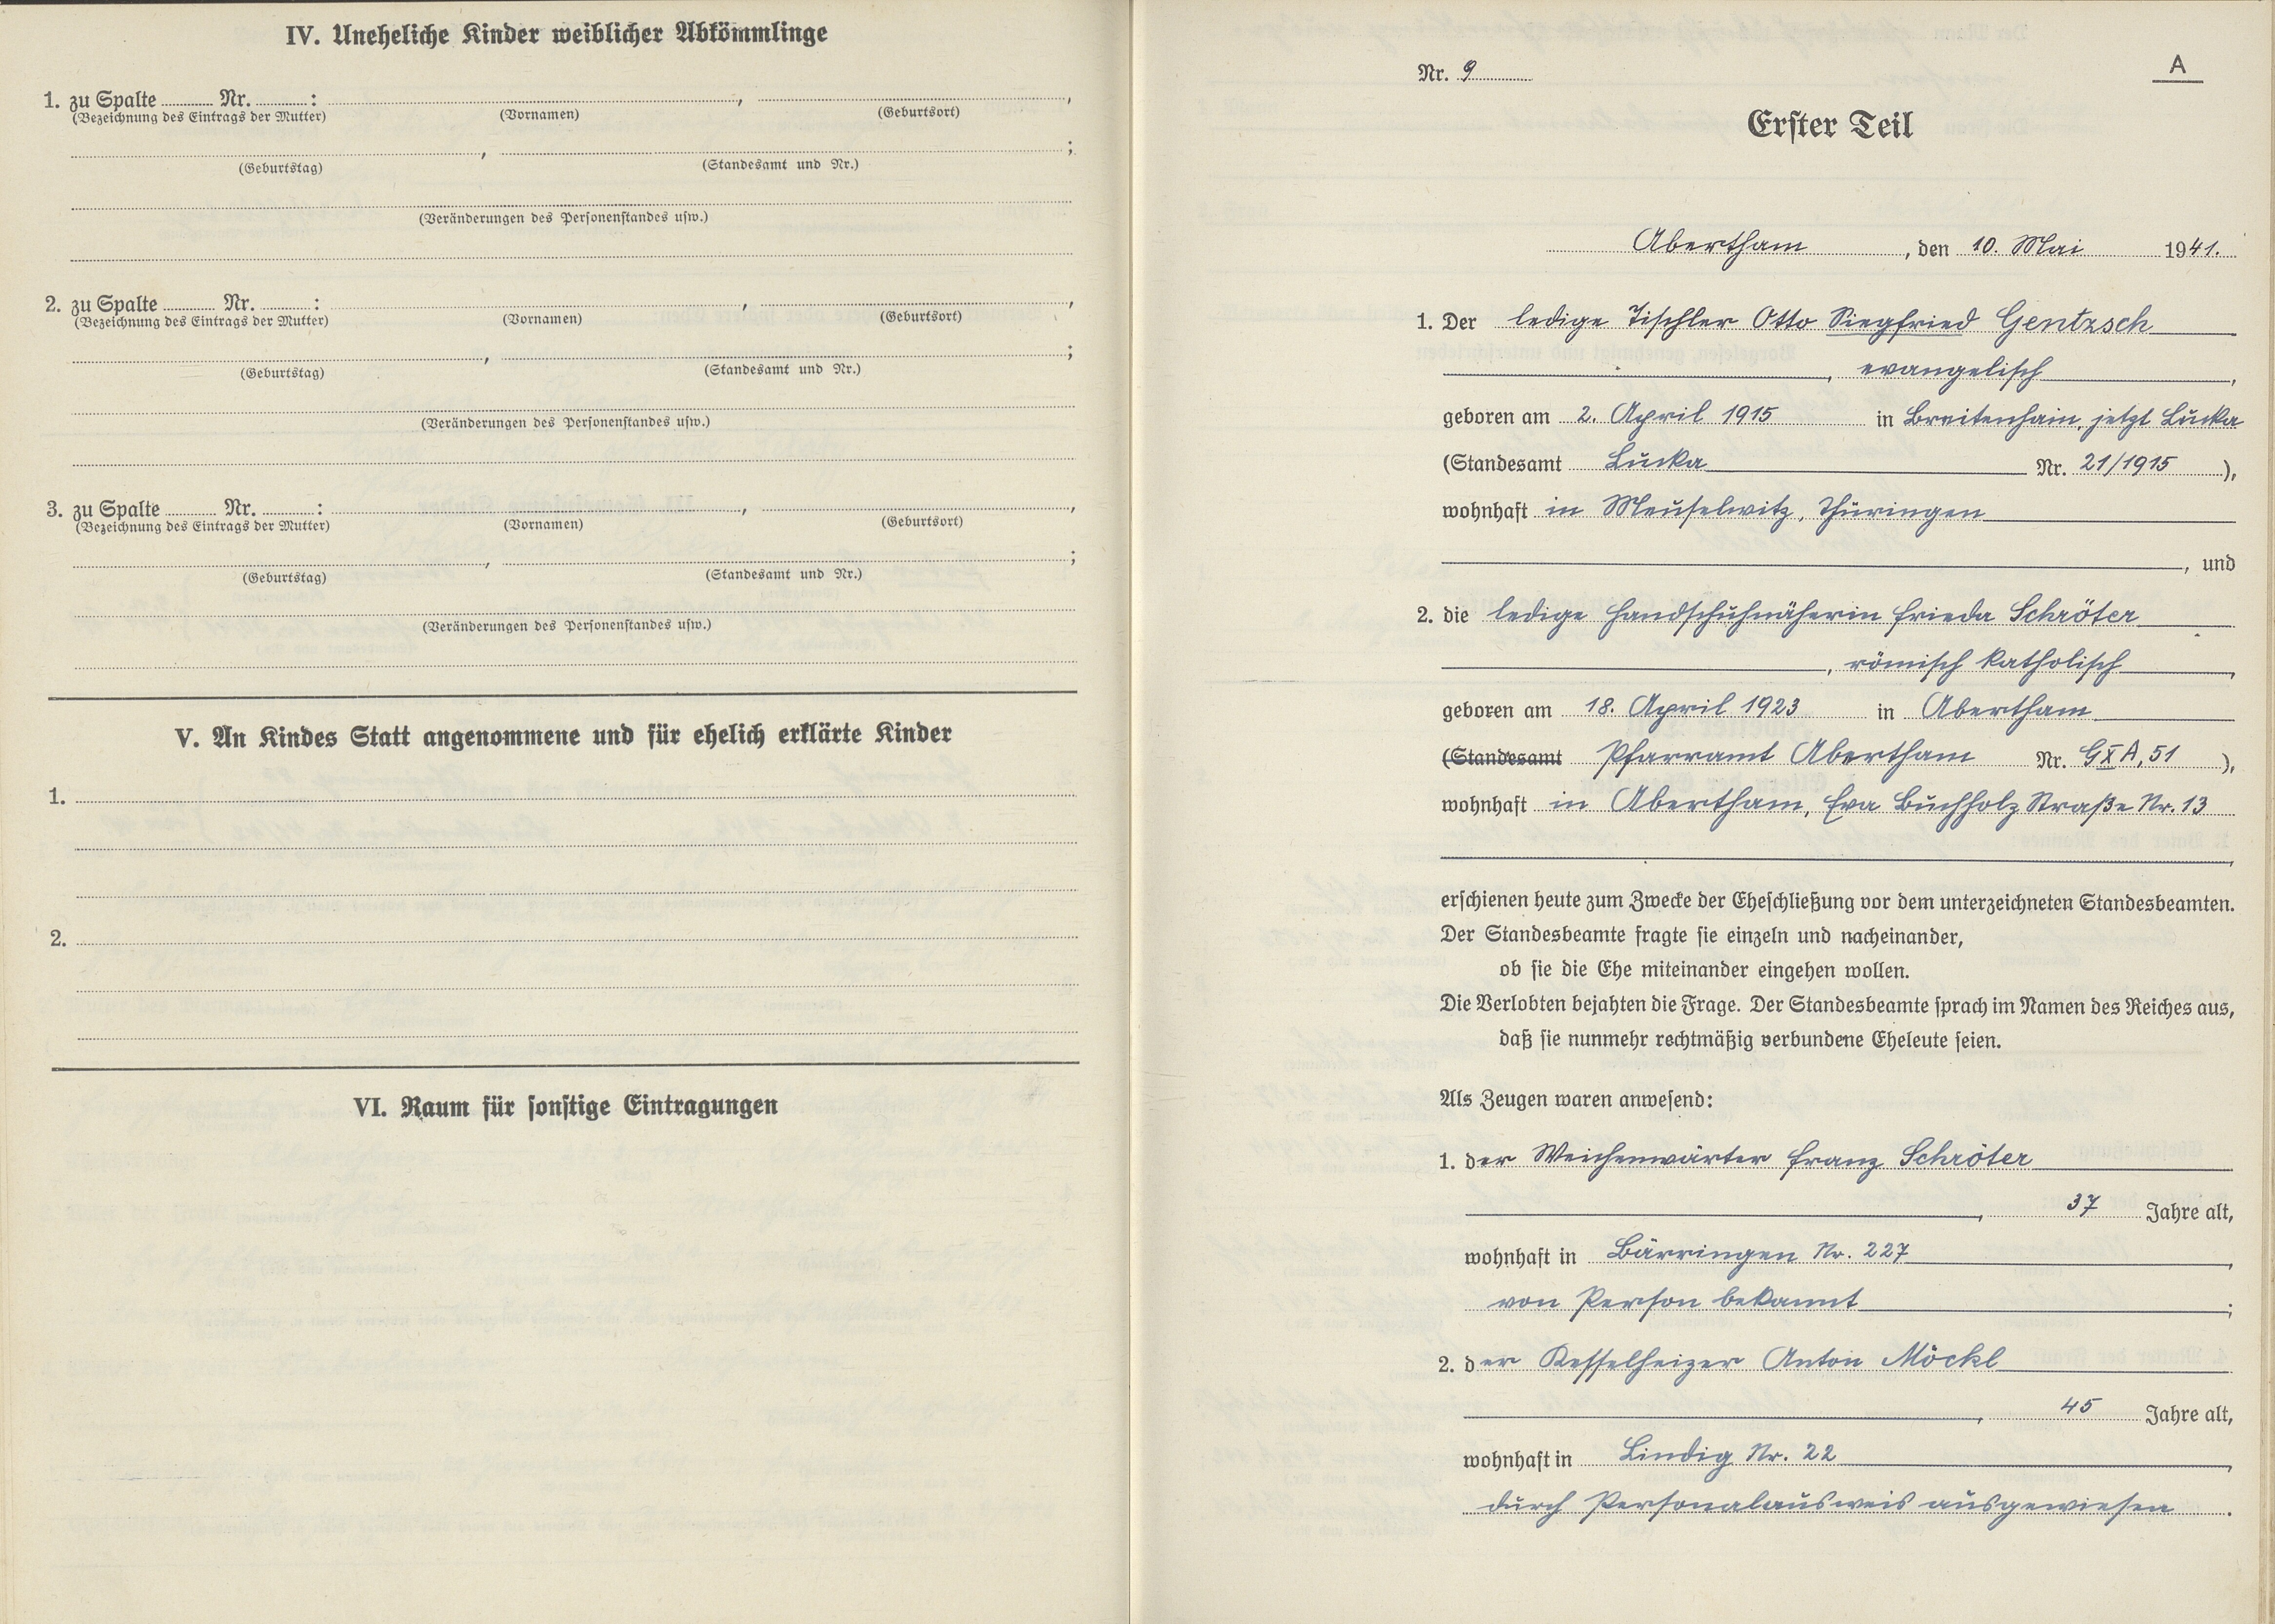 IV. Uneheliche Kinder weiblicher Abkömmlinge
1. zu Spalte ........ Nr. ........ : ........, ........,
(Bezeichnung des Eintrags der Mutter) (Vornamen) (Geburtsort)
........, ........;
(Geburtstag) (Standesamt und Nr.)
(Veränderungen des Personenstandes usw.)
2. zu Spalte ........ Nr. ........ : ........, ........,
(Bezeichnung des Eintrags der Mutter) (Vornamen) (Geburtsort)
........, ........;
(Geburtstag) (Standesamt und Nr.)
(Veränderungen des Personenstandes usw.)
3. zu Spalte ........ Nr. ........ : ........, ........,
(Bezeichnung des Eintrags der Mutter) (Vornamen) (Geburtsort)
........, ........;
(Geburtstag) (Standesamt und Nr.)
(Veränderungen des Personenstandes usw.)
V. An Kindes Statt angenommene und für ehelich erklärte Kinder
1.
2.
VI. Raum für sonstige Eintragungen
Nr. 9
A
Erster Teil
Abertham, den 10. Mai 1941.
1. Der ledige Tischler Otto Siegfried Gentzsch
, evangelisch,
geboren am 2. April 1915 in Breitenhain, jetzt Lucka
(Standesamt Lucka Nr. 21/1915),
wohnhaft in Meuselwitz, Thüringen
, und
2. die ledige Handschuhnäherin Frieda Schröter
, römisch katholisch,
geboren am 18. April 1923 in Abertham
(Standesamt Pfarramt Abertham Nr. G X A, 51),
wohnhaft in Abertham, Eva Buchholz Straße Nr. 13
,
erschienen heute zum Zwecke der Eheschließung vor dem unterzeichneten Standesbeamten.
Der Standesbeamte fragte sie einzeln und nacheinander,
ob sie die Ehe miteinander eingehen wollen.
Die Verlobten bejahten die Frage. Der Standesbeamte sprach im Namen des Reiches aus,
daß sie nunmehr rechtmäßig verbundene Eheleute seien.
Als Zeugen waren anwesend:
1. der Weichenwärter Franz Schröter
, 37 Jahre alt,
wohnhaft in Bärringen Nr. 227,
von Person bekannt;
2. der Kesselheizer Anton Möckl
, 45 Jahre alt,
wohnhaft in Lindig Nr. 22,
durch Personalausweis ausgewiesen.